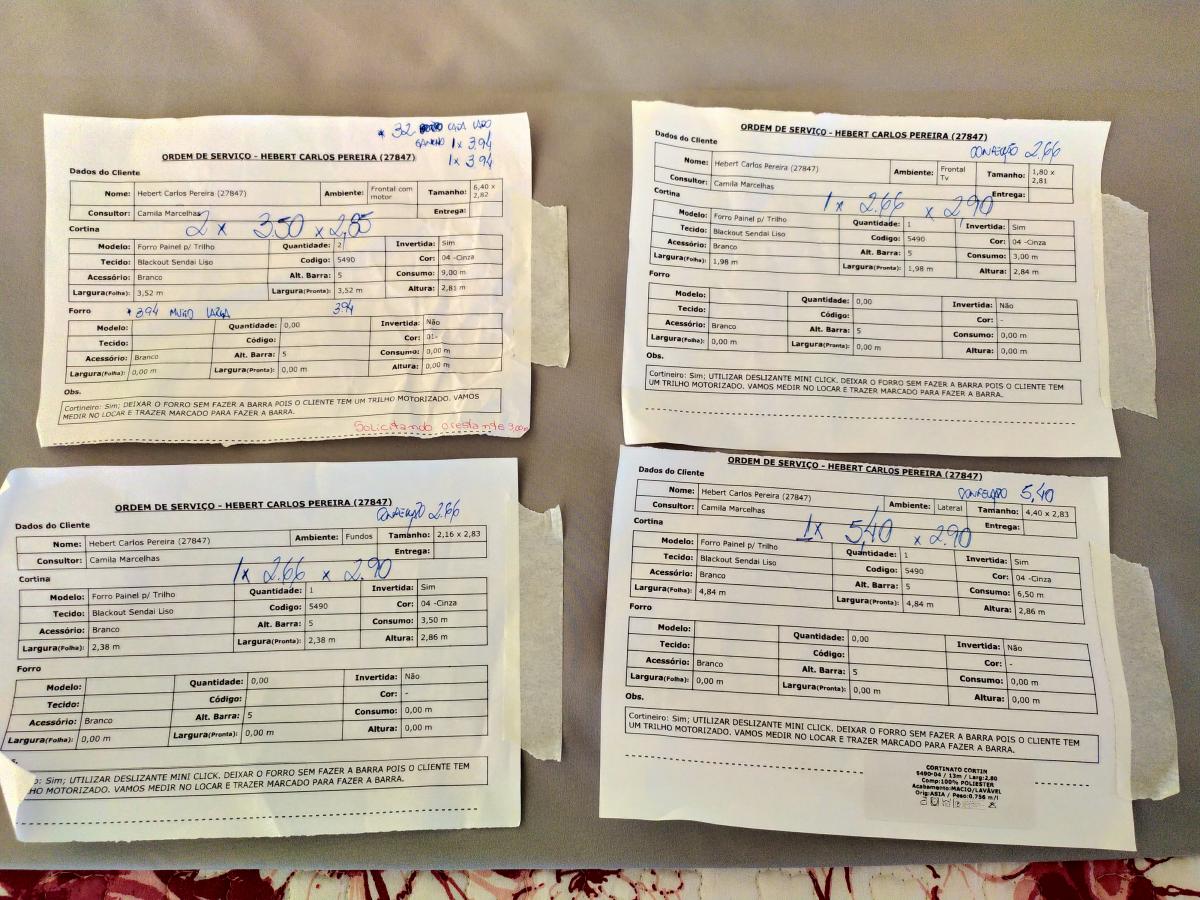 * 32 CADA LADO
GANCHO 1 x 3.94
1 x 3.94
ORDEM DE SERVIÇO - HEBERT CARLOS PEREIRA (27847)
Dados do Cliente
Nome: Hebert Carlos Pereira (27847) Ambiente: Frontal com motor Tamanho: 6,40 x 2,82
Consultor: Camila Marcelhas Entrega:
2 x 3.50 x 2,85
Cortina
Modelo: Forro Painel p/ Trilho Quantidade: 2 Invertida: Sim
Tecido: Blackout Sendai Liso Codigo: 5490 Cor: 04 -Cinza
Acessório: Branco Alt. Barra: 5 Consumo: 9,00 m
Largura(Folha): 3,52 m Largura(Pronta): 3,52 m Altura: 2,81 m
Forro * 394 MUITO LARGA 3.94
Modelo: Quantidade: 0,00 Invertida: Não
Tecido: Código: Cor:
Acessório: Branco Alt. Barra: 5 Consumo: 0,00 m
Largura(Folha): 0,00 m Largura(Pronta): 0,00 m Altura: 0,00 m
Obs.
Cortineiro: Sim; DEIXAR O FORRO SEM FAZER A BARRA POIS O CLIENTE TEM UM TRILHO MOTORIZADO. VAMOS
MEDIR NO LOCAR E TRAZER MARCADO PARA FAZER A BARRA.
Solicitando o restante 3,00m
ORDEM DE SERVIÇO - HEBERT CARLOS PEREIRA (27847)
CONFECÇÃO 2.66
Dados do Cliente
Nome: Hebert Carlos Pereira (27847) Ambiente: Frontal Tv Tamanho: 1,80 x 2,81
Consultor: Camila Marcelhas Entrega:
1 x 2.66 x 2.90
Cortina
Modelo: Forro Painel p/ Trilho Quantidade: 1 Invertida: Sim
Tecido: Blackout Sendai Liso Codigo: 5490 Cor: 04 -Cinza
Acessório: Branco Alt. Barra: 5 Consumo: 3,00 m
Largura(Folha): 1,98 m Largura(Pronta): 1,98 m Altura: 2,84 m
Forro
Modelo: Quantidade: 0,00 Invertida: Não
Tecido: Código: Cor: -
Acessório: Branco Alt. Barra: 5 Consumo: 0,00 m
Largura(Folha): 0,00 m Largura(Pronta): 0,00 m Altura: 0,00 m
Obs.
Cortineiro: Sim; UTILIZAR DESLIZANTE MINI CLICK. DEIXAR O FORRO SEM FAZER A BARRA POIS O CLIENTE TEM
UM TRILHO MOTORIZADO. VAMOS MEDIR NO LOCAR E TRAZER MARCADO PARA FAZER A BARRA.
ORDEM DE SERVIÇO - HEBERT CARLOS PEREIRA (27847)
CONFECÇÃO 2.66
Dados do Cliente
Nome: Hebert Carlos Pereira (27847) Ambiente: Fundos Tamanho: 2,16 x 2,83
Consultor: Camila Marcelhas Entrega:
1 x 2.66 x 2.90
Cortina
Modelo: Forro Painel p/ Trilho Quantidade: 1 Invertida: Sim
Tecido: Blackout Sendai Liso Codigo: 5490 Cor: 04 -Cinza
Acessório: Branco Alt. Barra: 5 Consumo: 3,50 m
Largura(Folha): 2,38 m Largura(Pronta): 2,38 m Altura: 2,86 m
Forro
Modelo: Quantidade: 0,00 Invertida: Não
Tecido: Código: Cor: -
Acessório: Branco Alt. Barra: 5 Consumo: 0,00 m
Largura(Folha): 0,00 m Largura(Pronta): 0,00 m Altura: 0,00 m
o: Sim; UTILIZAR DESLIZANTE MINI CLICK. DEIXAR O FORRO SEM FAZER A BARRA POIS O CLIENTE TEM
HO MOTORIZADO. VAMOS MEDIR NO LOCAR E TRAZER MARCADO PARA FAZER A BARRA.
ORDEM DE SERVIÇO - HEBERT CARLOS PEREIRA (27847)
CONFECÇÃO 5,40
Dados do Cliente
Nome: Hebert Carlos Pereira (27847) Ambiente: Lateral Tamanho: 4,40 x 2,83
Consultor: Camila Marcelhas Entrega:
1x 5,40 x 2.90
Cortina
Modelo: Forro Painel p/ Trilho Quantidade: 1 Invertida: Sim
Tecido: Blackout Sendai Liso Codigo: 5490 Cor: 04 -Cinza
Acessório: Branco Alt. Barra: 5 Consumo: 6,50 m
Largura(Folha): 4,84 m Largura(Pronta): 4,84 m Altura: 2,86 m
Forro
Modelo: Quantidade: 0,00 Invertida: Não
Tecido: Código: Cor: -
Acessório: Branco Alt. Barra: 5 Consumo: 0,00 m
Largura(Folha): 0,00 m Largura(Pronta): 0,00 m Altura: 0,00 m
Obs.
Cortineiro: Sim; UTILIZAR DESLIZANTE MINI CLICK. DEIXAR O FORRO SEM FAZER A BARRA POIS O CLIENTE TEM
UM TRILHO MOTORIZADO. VAMOS MEDIR NO LOCAR E TRAZER MARCADO PARA FAZER A BARRA.
CORTINATO CORTIN
5490-04 / 13m / Larg:2,80
Comp:100% POLIESTER
Acabamento:MACIO/LAVÁVEL
Orig:ASIA / Peso:0.756 m/l